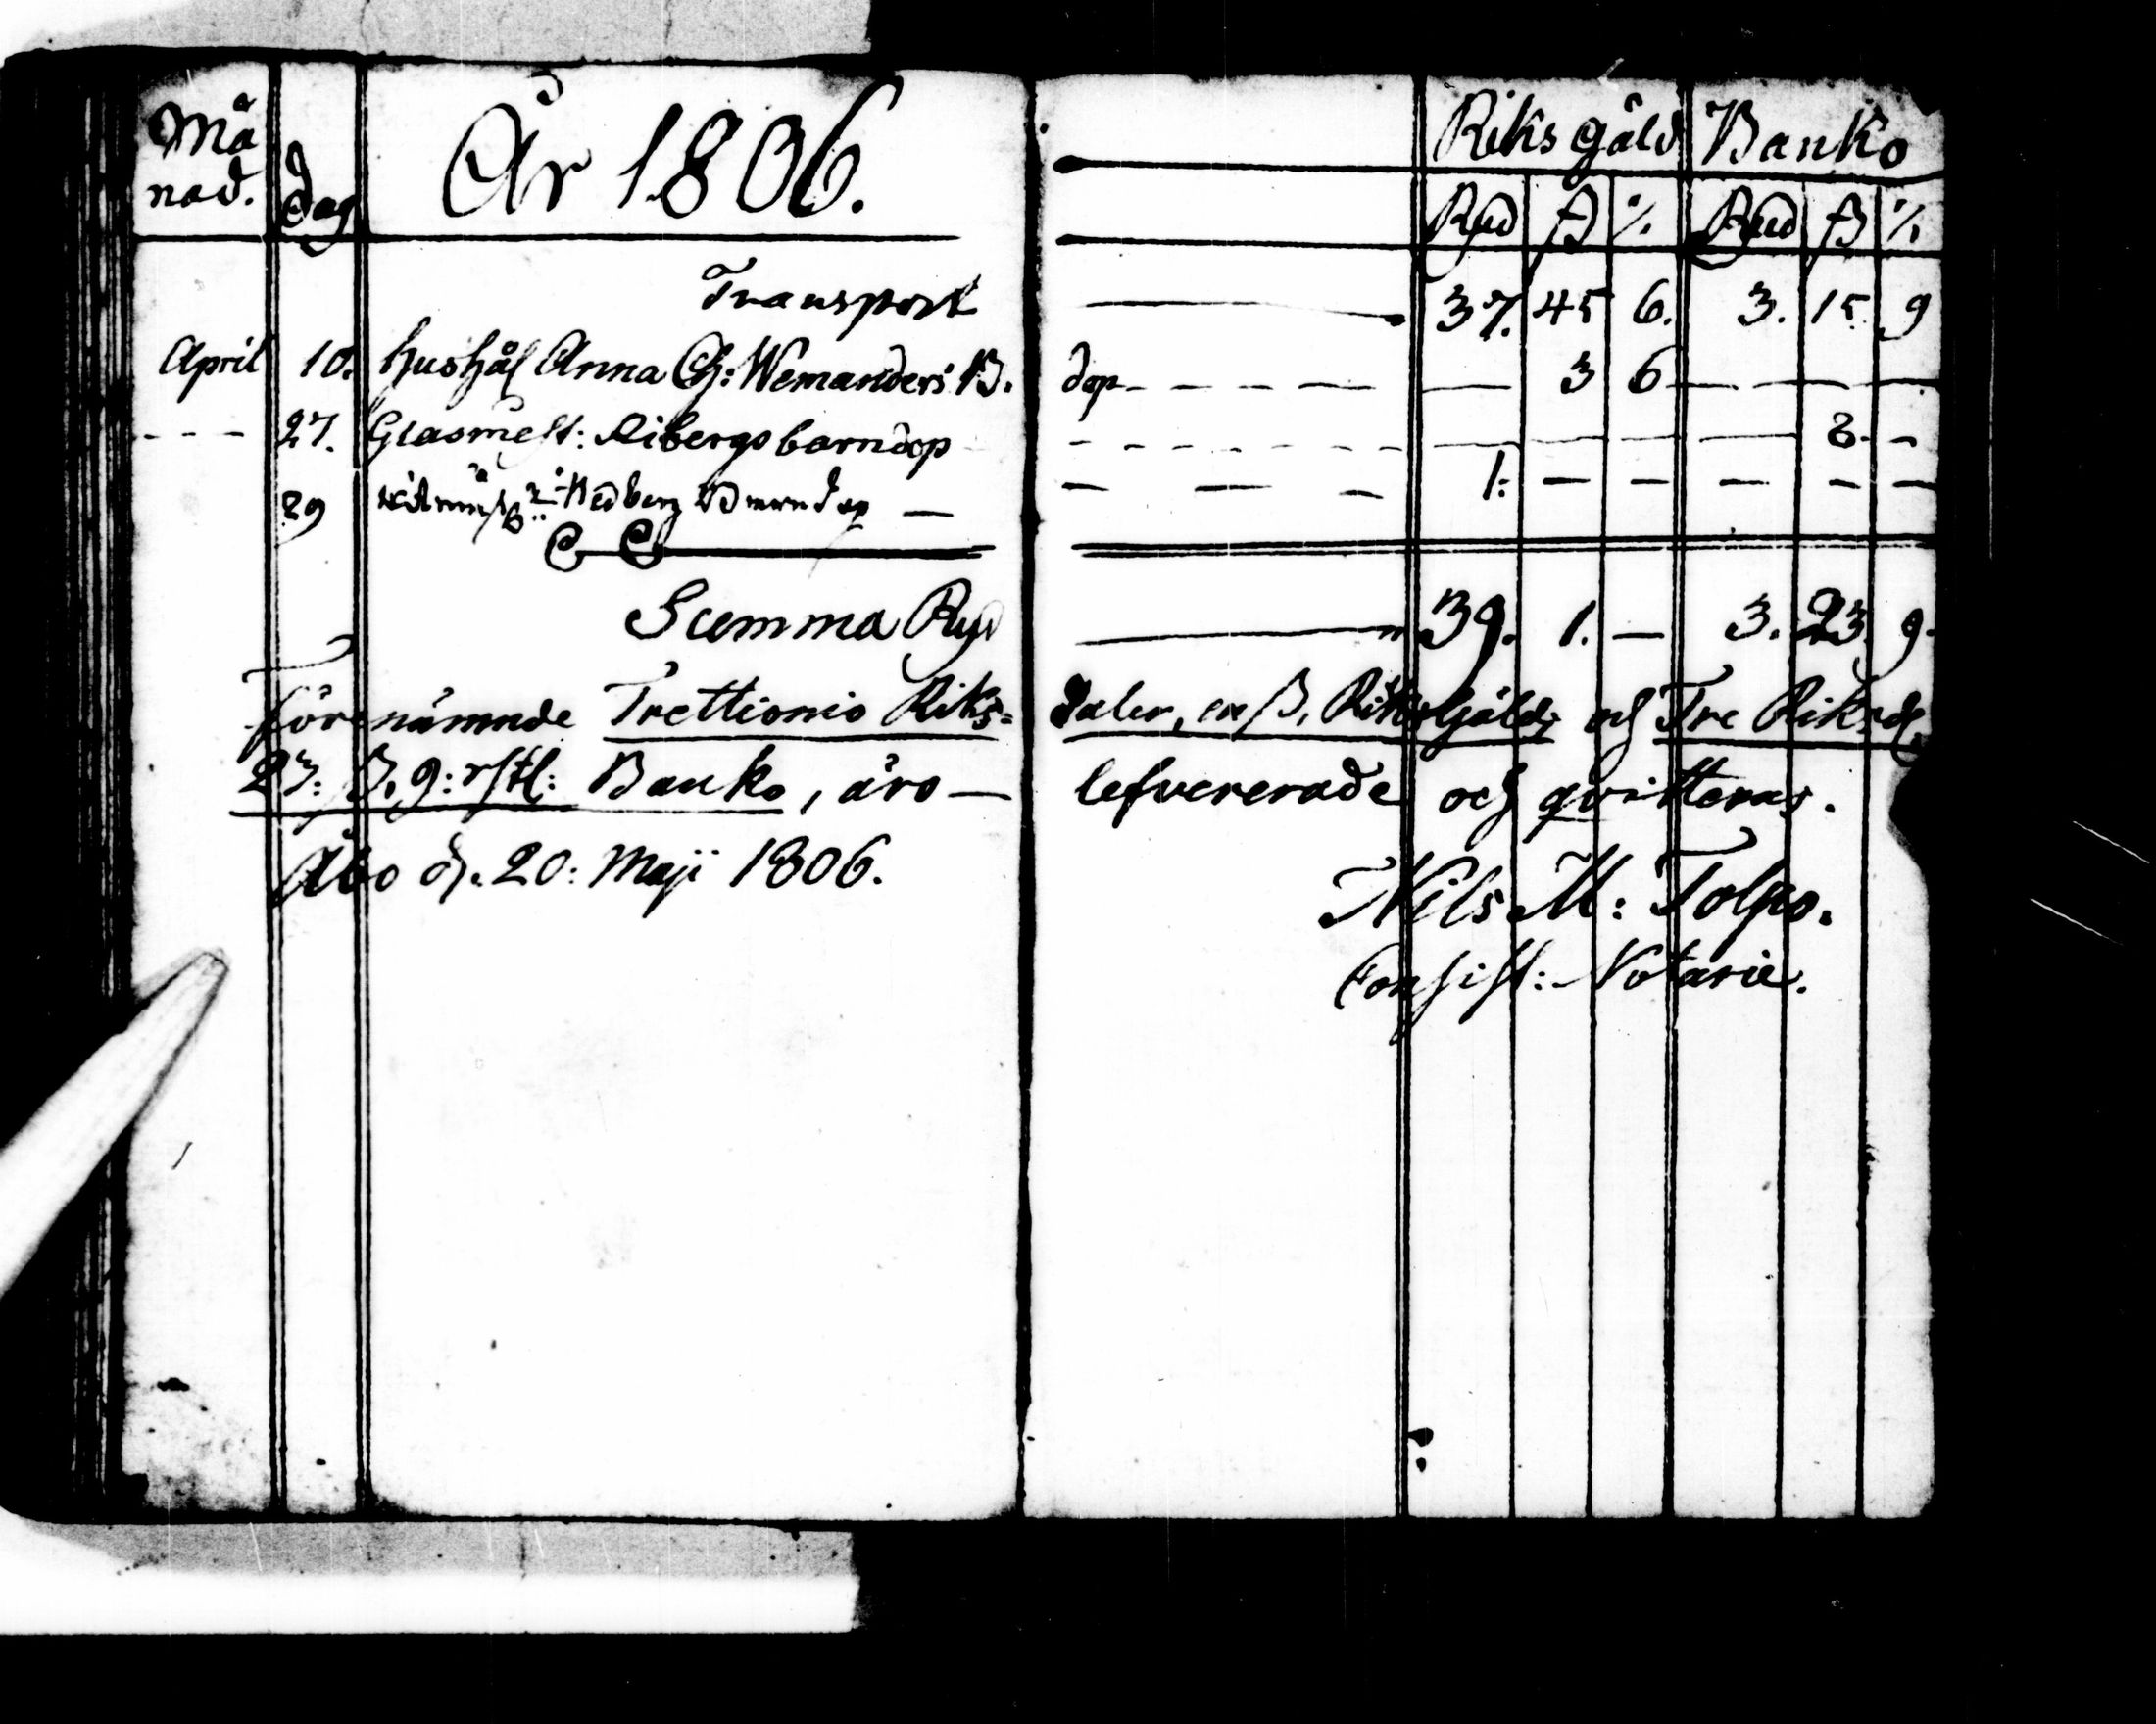 Må
nad. dag År 1806. Riksgäld Banko
Rd ß % Rd ß %
Transport 37. 45 6. 3. 15 9
April 10. hushål Anna Ch: Wemanders B. dop — 3 6 — — —
27. Glasmest: Aibergs barndop — — — — 8. —
29 Hedberg 1: — — — — —
Summa Rd 39. 1. — 3. 23. 9.
förenämnde Trettionio Riks= daler, en ß, Riksgäld, och Tre Riksd.
23: ß. 9: rst: Banko, äro — lefvererade och qvitteras.
Åbo d. 20: Maji 1806. Nils M: Tolpo.
Consist: Notarie.